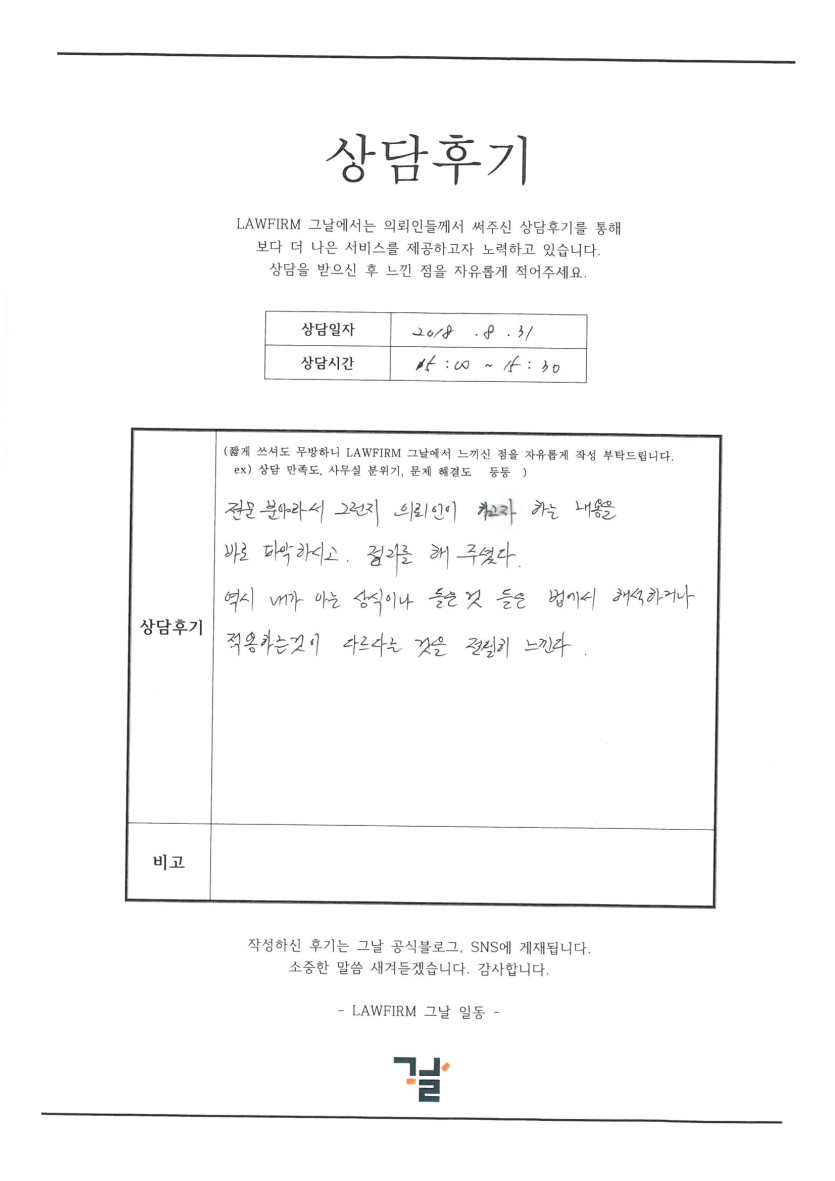 상담후기
LAWFIRM 그날에서는 의뢰인들께서 써주신 상담후기를 통해
보다 더 나은 서비스를 제공하고자 노력하고 있습니다.
상담을 받으신 후 느낀 점을 자유롭게 적어주세요.
상담일자 2018 . 8 . 31
상담시간 15 : 00 ~ 15 : 30
(짧게 쓰셔도 무방하니 LAWFIRM 그날에서 느끼신 점을 자유롭게 작성 부탁드립니다.
ex) 상담 만족도, 사무실 분위기, 문제 해결도 등등 )
전문 분야라서 그런지 의뢰인이 하고자 하는 내용을
바로 파악하시고. 정리를 해 주셨다.
역시 내가 아는 상식이나 들은것 들은 법에서 해석하거나
상담후기
적용하는것이 다르다는 것을 절실히 느낀다.
비고
작성하신 후기는 그날 공식블로그, SNS에 게재됩니다.
소중한 말씀 새겨듣겠습니다. 감사합니다.
- LAWFIRM 그날 일동 -
그날